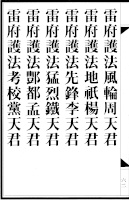 雷府護法風輪周天君
雷府護法地祇楊天君
雷府護法先鋒李天君
雷府護法猛烈鐵天君
雷府護法酆都孟天君
雷府護法考校黨天君